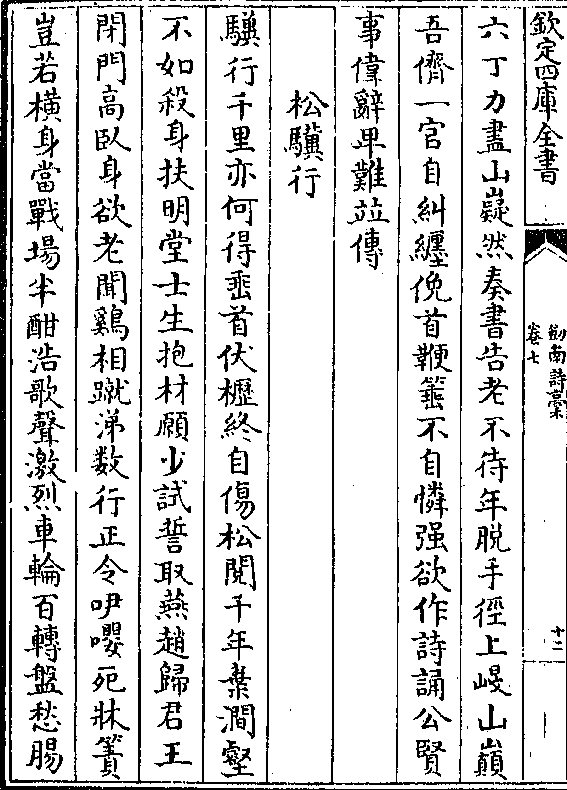 欽定四庫全書
劒南詩藁
卷七
十二
六丁力盡山嶷然奏書告老不待年脫手徑上峴山巔
吾儕一官自糾纏俛首鞭箠不自憐强欲作詩誦公賢
事偉辭卑難竝傳
松驥行
驥行千里亦何得垂首伏櫪終自傷松閱千年棄澗壑
不如殺身扶明堂士生抱材願少試誓取燕趙歸君王
閉門高臥身欲老聞鷄相蹴涕数行正令咿嚶死牀簀
豈若橫身當戰場半酣浩歌聲激烈車輪百轉盤愁腸